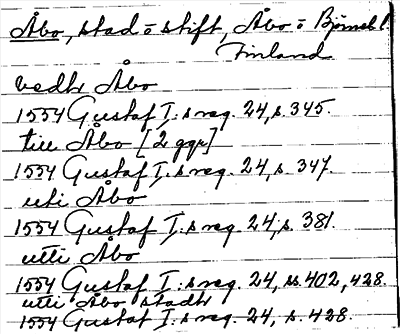 Åbo, stad o stift, Åbo o Björneb l.
Finland
vedh Åbo
1554 Gustaf I:s reg. 24, s. 345.
till Åbo [2 ggr]
1554 Gustaf I:s reg. 24, s. 347.
uti Åbo
1554 Gustaf I:s reg. 24, s. 381.
utti Åbo
1554 Gustaf I:s reg. 24, ss. 402, 428.
utti Åbo stadh
1554 Gustaf I:s reg. 24, s. 428.